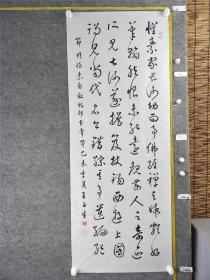 懷素家長沙幼而事佛經禪之暇頗好
筆翰然恨未能遠覩前人之奇迹
所見甚淺遂擔笈杖錫西遊上國
謁見當代名公錯綜其事遺編絕
節臨懷素自敘帖